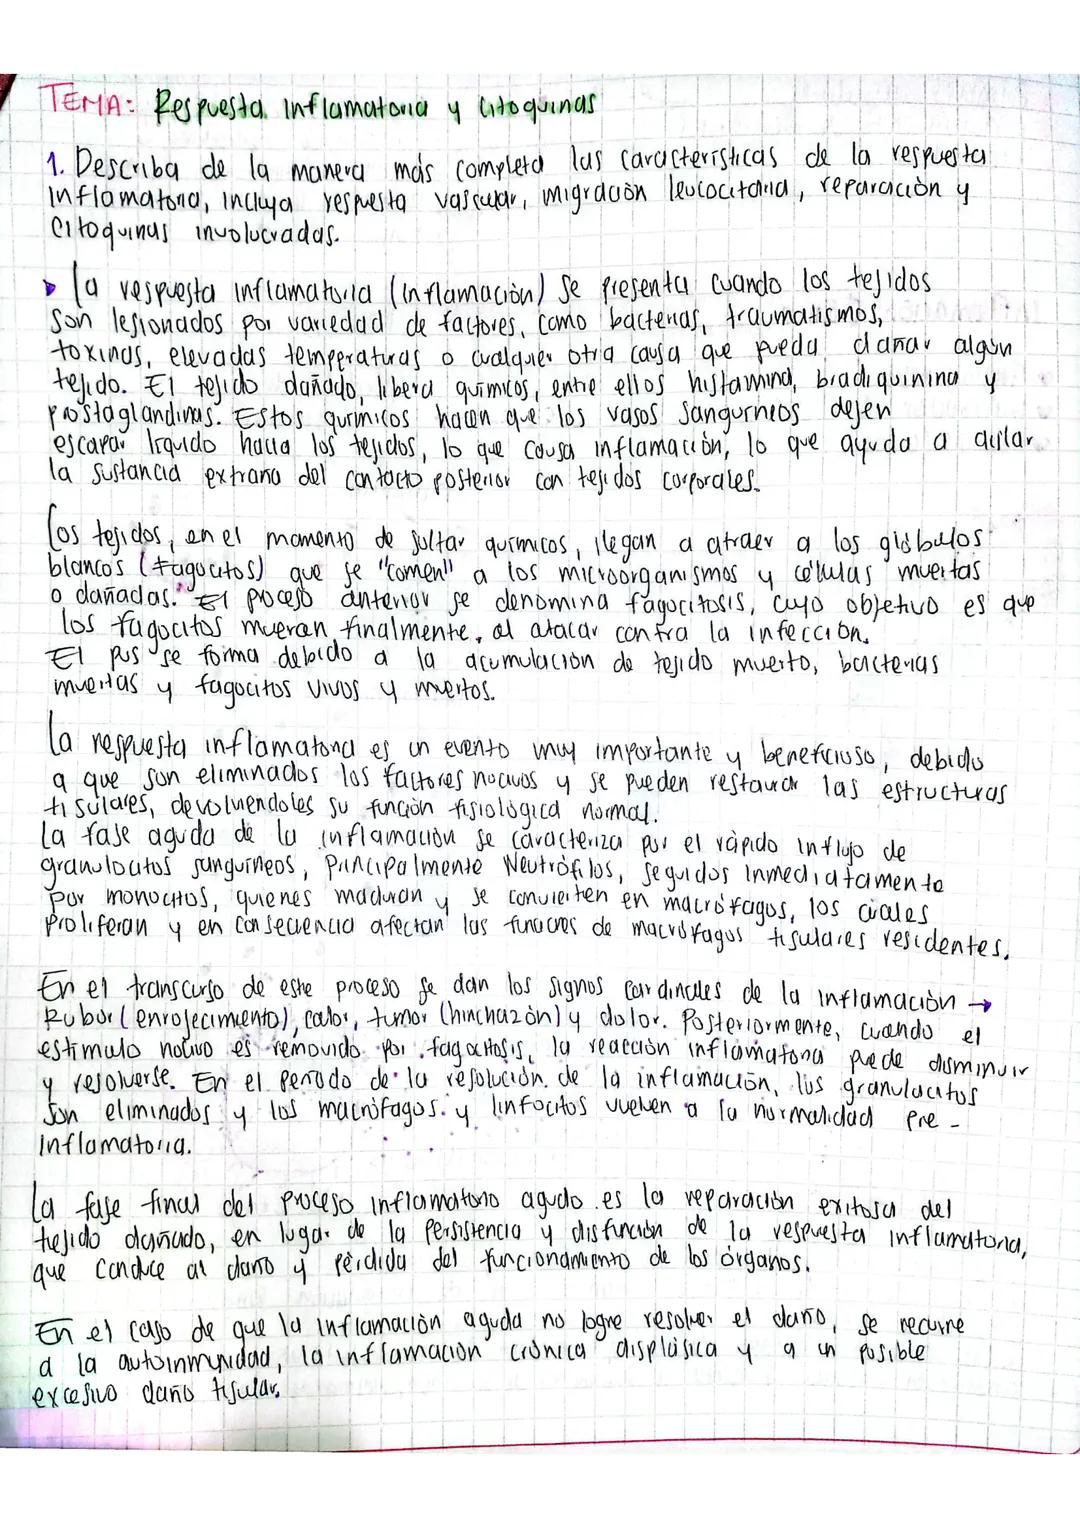 TEMA: Respuesta Inflamatoria y Citoquinas
1. Describa de la manera más completa las características de la respuesta
Inflamatoria, Incluya respuesta vascular, migración leucocitaria, reparación y
Citoquinas involucradas.
La respuesta inflamatoria (inflamación) Se presenta cuando los tejidos
Son lesionados por variedad de factores, como bacterias, traumatismos,
toxinas, elevadas temperaturas o cualquier otra causa que pueda dañar algún
tejido. El tejido dañado, libera químicos, entre ellos histamina, bradiquinina y
prostaglandinas. Estos químicos hacen que los vasos sanguíneos dejen
escapar líquido hacia los tejidos, lo que causa inflamación, lo que ayuda a aislar
la sustancia extraña del contacto posterior con tejidos corporales.
Los tejidos, en el momento de soltar químicos, llegan a atraer a los glóbulos
blancos (Fagocitos) que se "comen" a los microorganismos y células muertas
o dañadas. El proceso anterior se denomina fagocitosis, cuyo objetivo es que
los fagocitos mueran finalmente, al atacar contra la infección.
El pus se forma debido a la acumulación de tejido muerto, bacterias
muertas y fagocitos vivos y muertos.
La respuesta inflamatoria es un evento muy importante y beneficioso, debido
a que son eliminados los factores nocivos y se pueden restaurar las estructuras
tisulares, devolviendoles su función fisiológica normal.
La fase aguda de la inflamación se caracteriza por el rápido influjo de
granulocitos sanguíneos, Principalmente Neutrófilos, seguidos inmediatamente
por monocitos, quienes maduran y se convierten en macrófagos, los cuales
Proliferan y en consecuencia afectan las funciones de macrófagos tisulares residentes.
En el transcurso de este proceso se dan los signos cardinales de la inflamación →
Rubor (enrojecimiento), calor, tumor (hinchazón) y dolor. Posteriormente, cuando el
estimulo nocivo es removido por fagocitosis, la reacción inflamatoria puede disminuir
y resolverse. En el periodo de la resolución de la inflamación, los granulocitos
Son eliminados y los macrófagos y linfocitos vuelven a la normalidad Pre -
Inflamatoria.
La fase final del proceso inflamatorio agudo es la reparación exitosa del
tejido dañado, en lugar de la Persistencia y disfunción de la respuesta inflamatoria,
que conduce al daño y pérdida del funcionamiento de los órganos.
En el caso de que la inflamación aguda no logre resolver el daño, se recurre
a la autoinmunidad, la inflamación crónica displásica y a un posible
excesivo daño tisular.